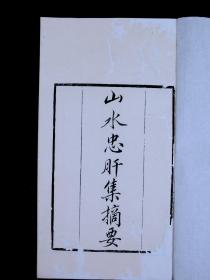 山水忠肝集摘要